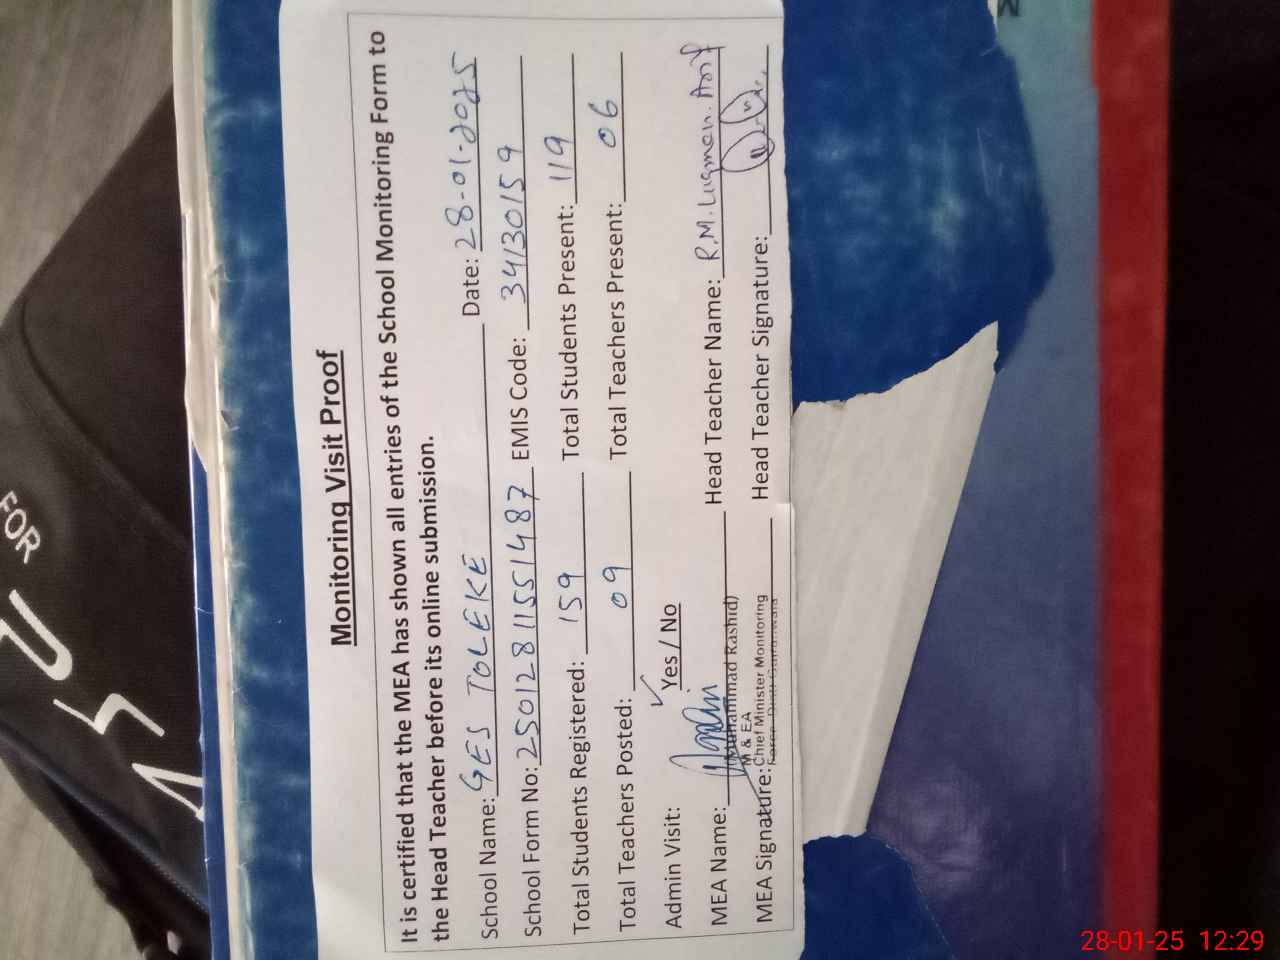 Monitoring Visit Proof
It is certified that the MEA has shown all entries of the School Monitoring Form to
the Head Teacher before its online submission.
School Name: GES TOLEKE Date: 28-01-2025
School Form No: 25012811551487 EMIS Code: 34130159
Total Students Registered: 159 Total Students Present: 119
Total Teachers Posted: 09 Total Teachers Present: 06
Admin Visit: Yes / No
MEA Name: (Muhammad Rashid) Head Teacher Name: R.M. Luqman. Arif
M & EA
MEA Signature: Chief Minister Monitoring Head Teacher Signature:
FOR
28-01-25 12:29